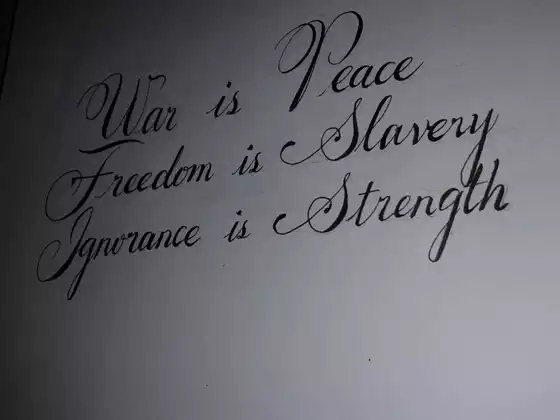 War is Peace
Freedom is Slavery
Ignorance is Strength